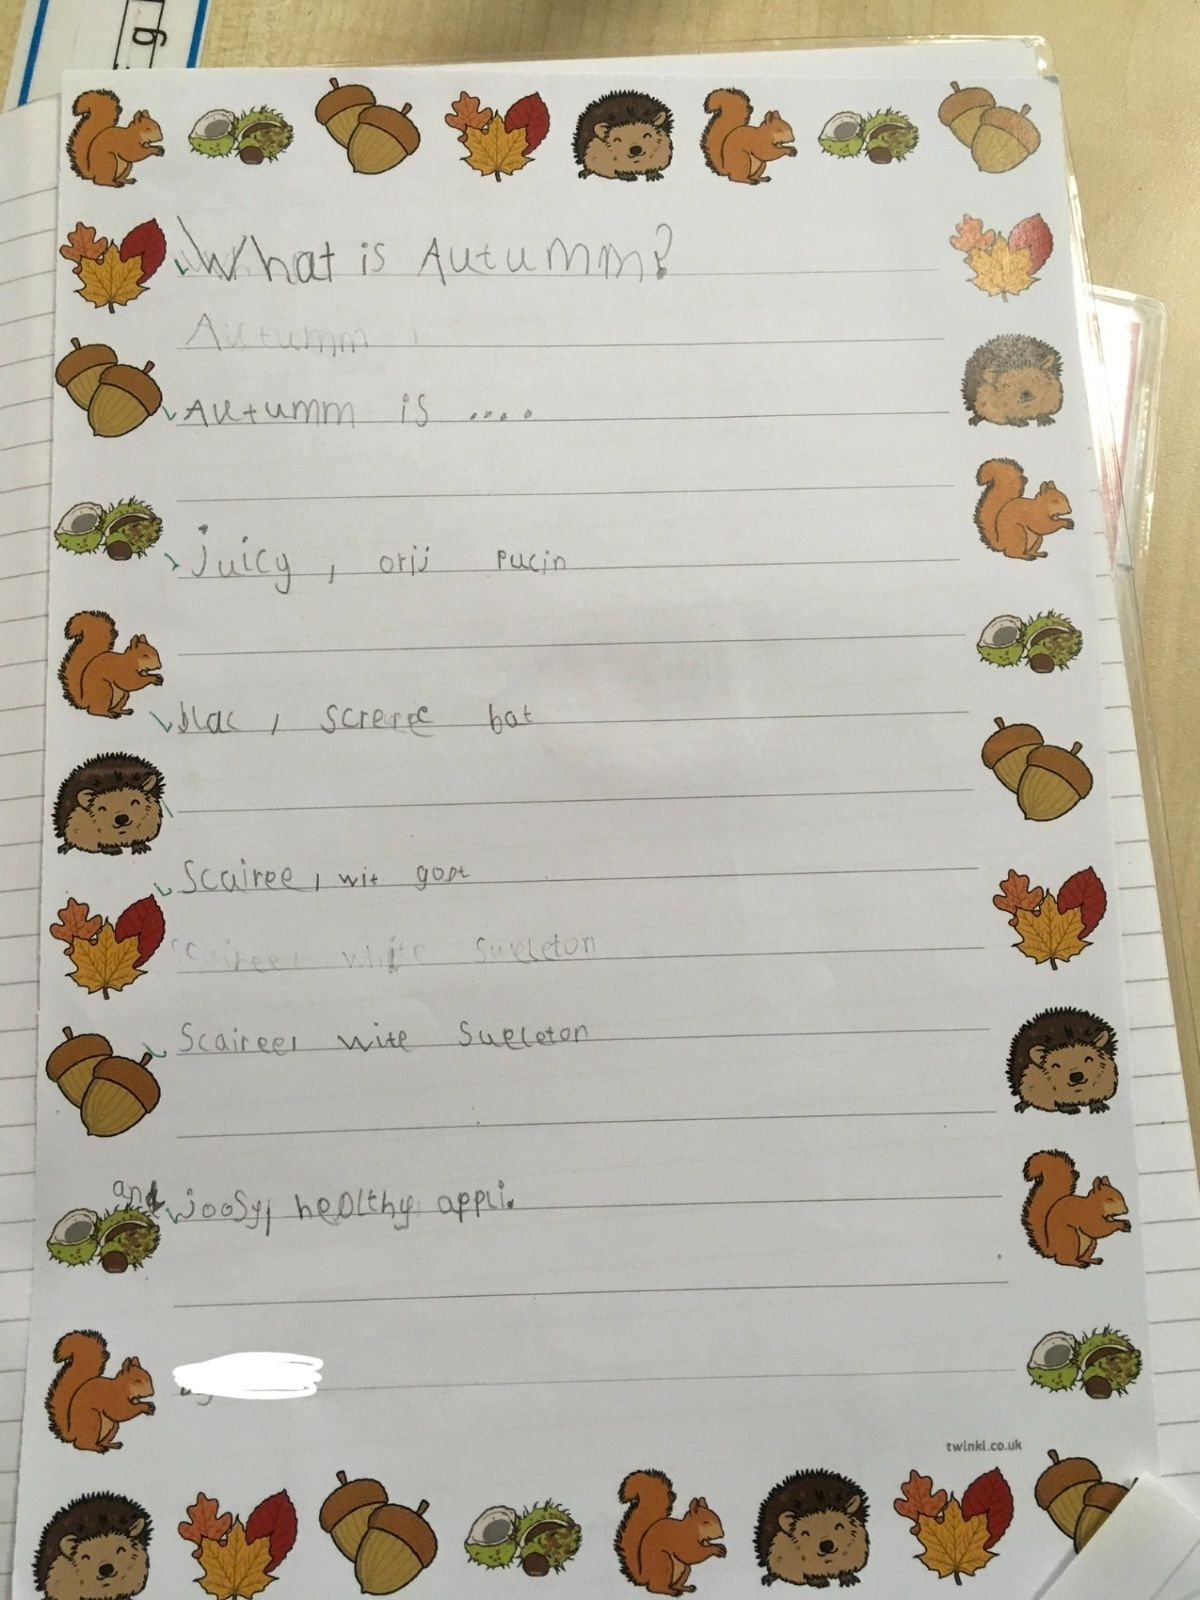 What is Autumm?
Autumm i
Autumm is ....
juicy, orij pucin
blac, screree bat
Scairee, wit gost
Scairee, white Sueleton
Scairee, wite Sueleton
and joosy, healthy appli.
twinkl.co.uk